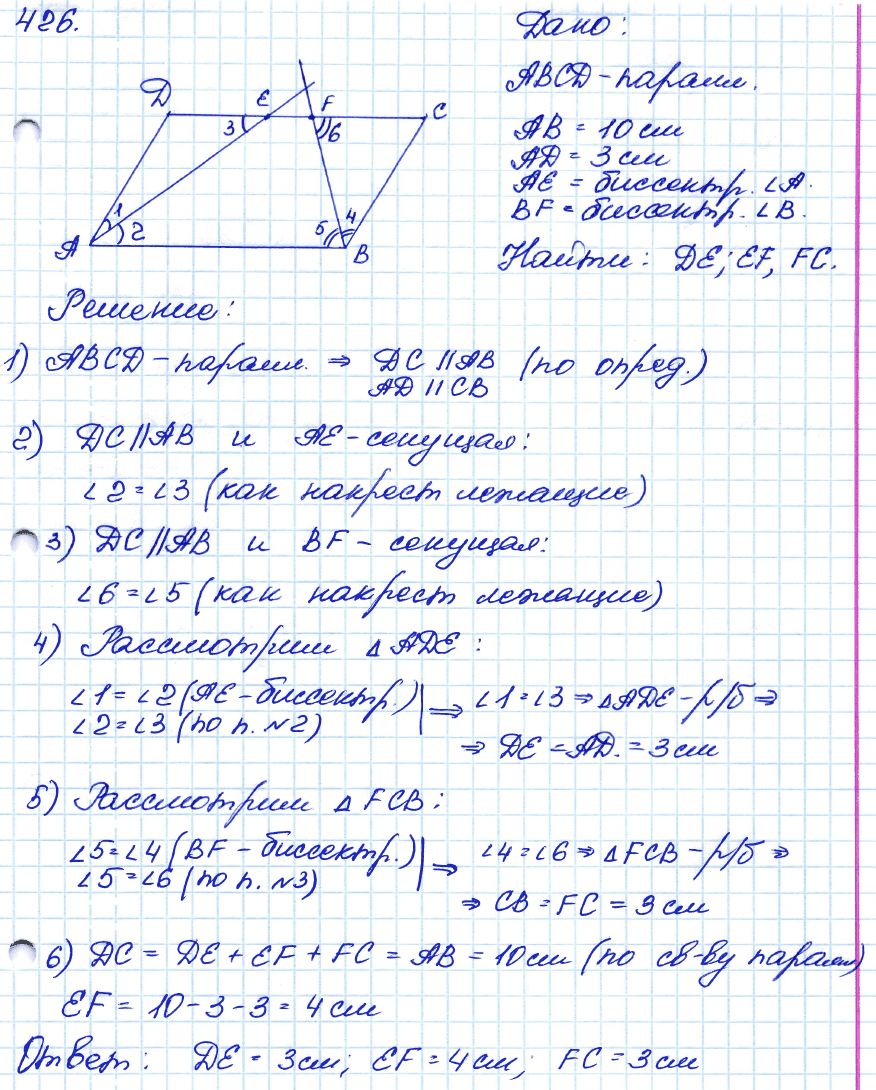 426.
Дано:
ABCD - паралл.
AB = 10 см
AD = 3 см
AE = биссектр. ∠A.
BF = биссектр. ∠B.
Найти: DE; EF, FC.
D E F C
3 6
1 2 5 4
A B
Решение:
1) ABCD - паралл. ⇒ DC || AB (по опред.)
AD || CB
2) DC || AB и AE - секущая:
∠2 = ∠3 (как накрест лежащие)
3) DC || AB и BF - секущая:
∠6 = ∠5 (как накрест лежащие)
4) Рассмотрим △ ADE:
∠1 = ∠2 (AE - биссектр.) | ⇒ ∠1 = ∠3 ⇒ △ADE - р/б ⇒
∠2 = ∠3 (по п. №2)
⇒ DE = AD. = 3 см
5) Рассмотрим △ FCB:
∠5 = ∠4 (BF - биссектр.) | ⇒ ∠4 = ∠6 ⇒ △FCB - р/б ⇒
∠5 = ∠6 (по п. №3)
⇒ CB = FC = 3 см
6) DC = DE + EF + FC = AB = 10 см (по св-ву паралл)
EF = 10 - 3 - 3 = 4 см
Ответ: DE = 3 см; EF = 4 см; FC = 3 см